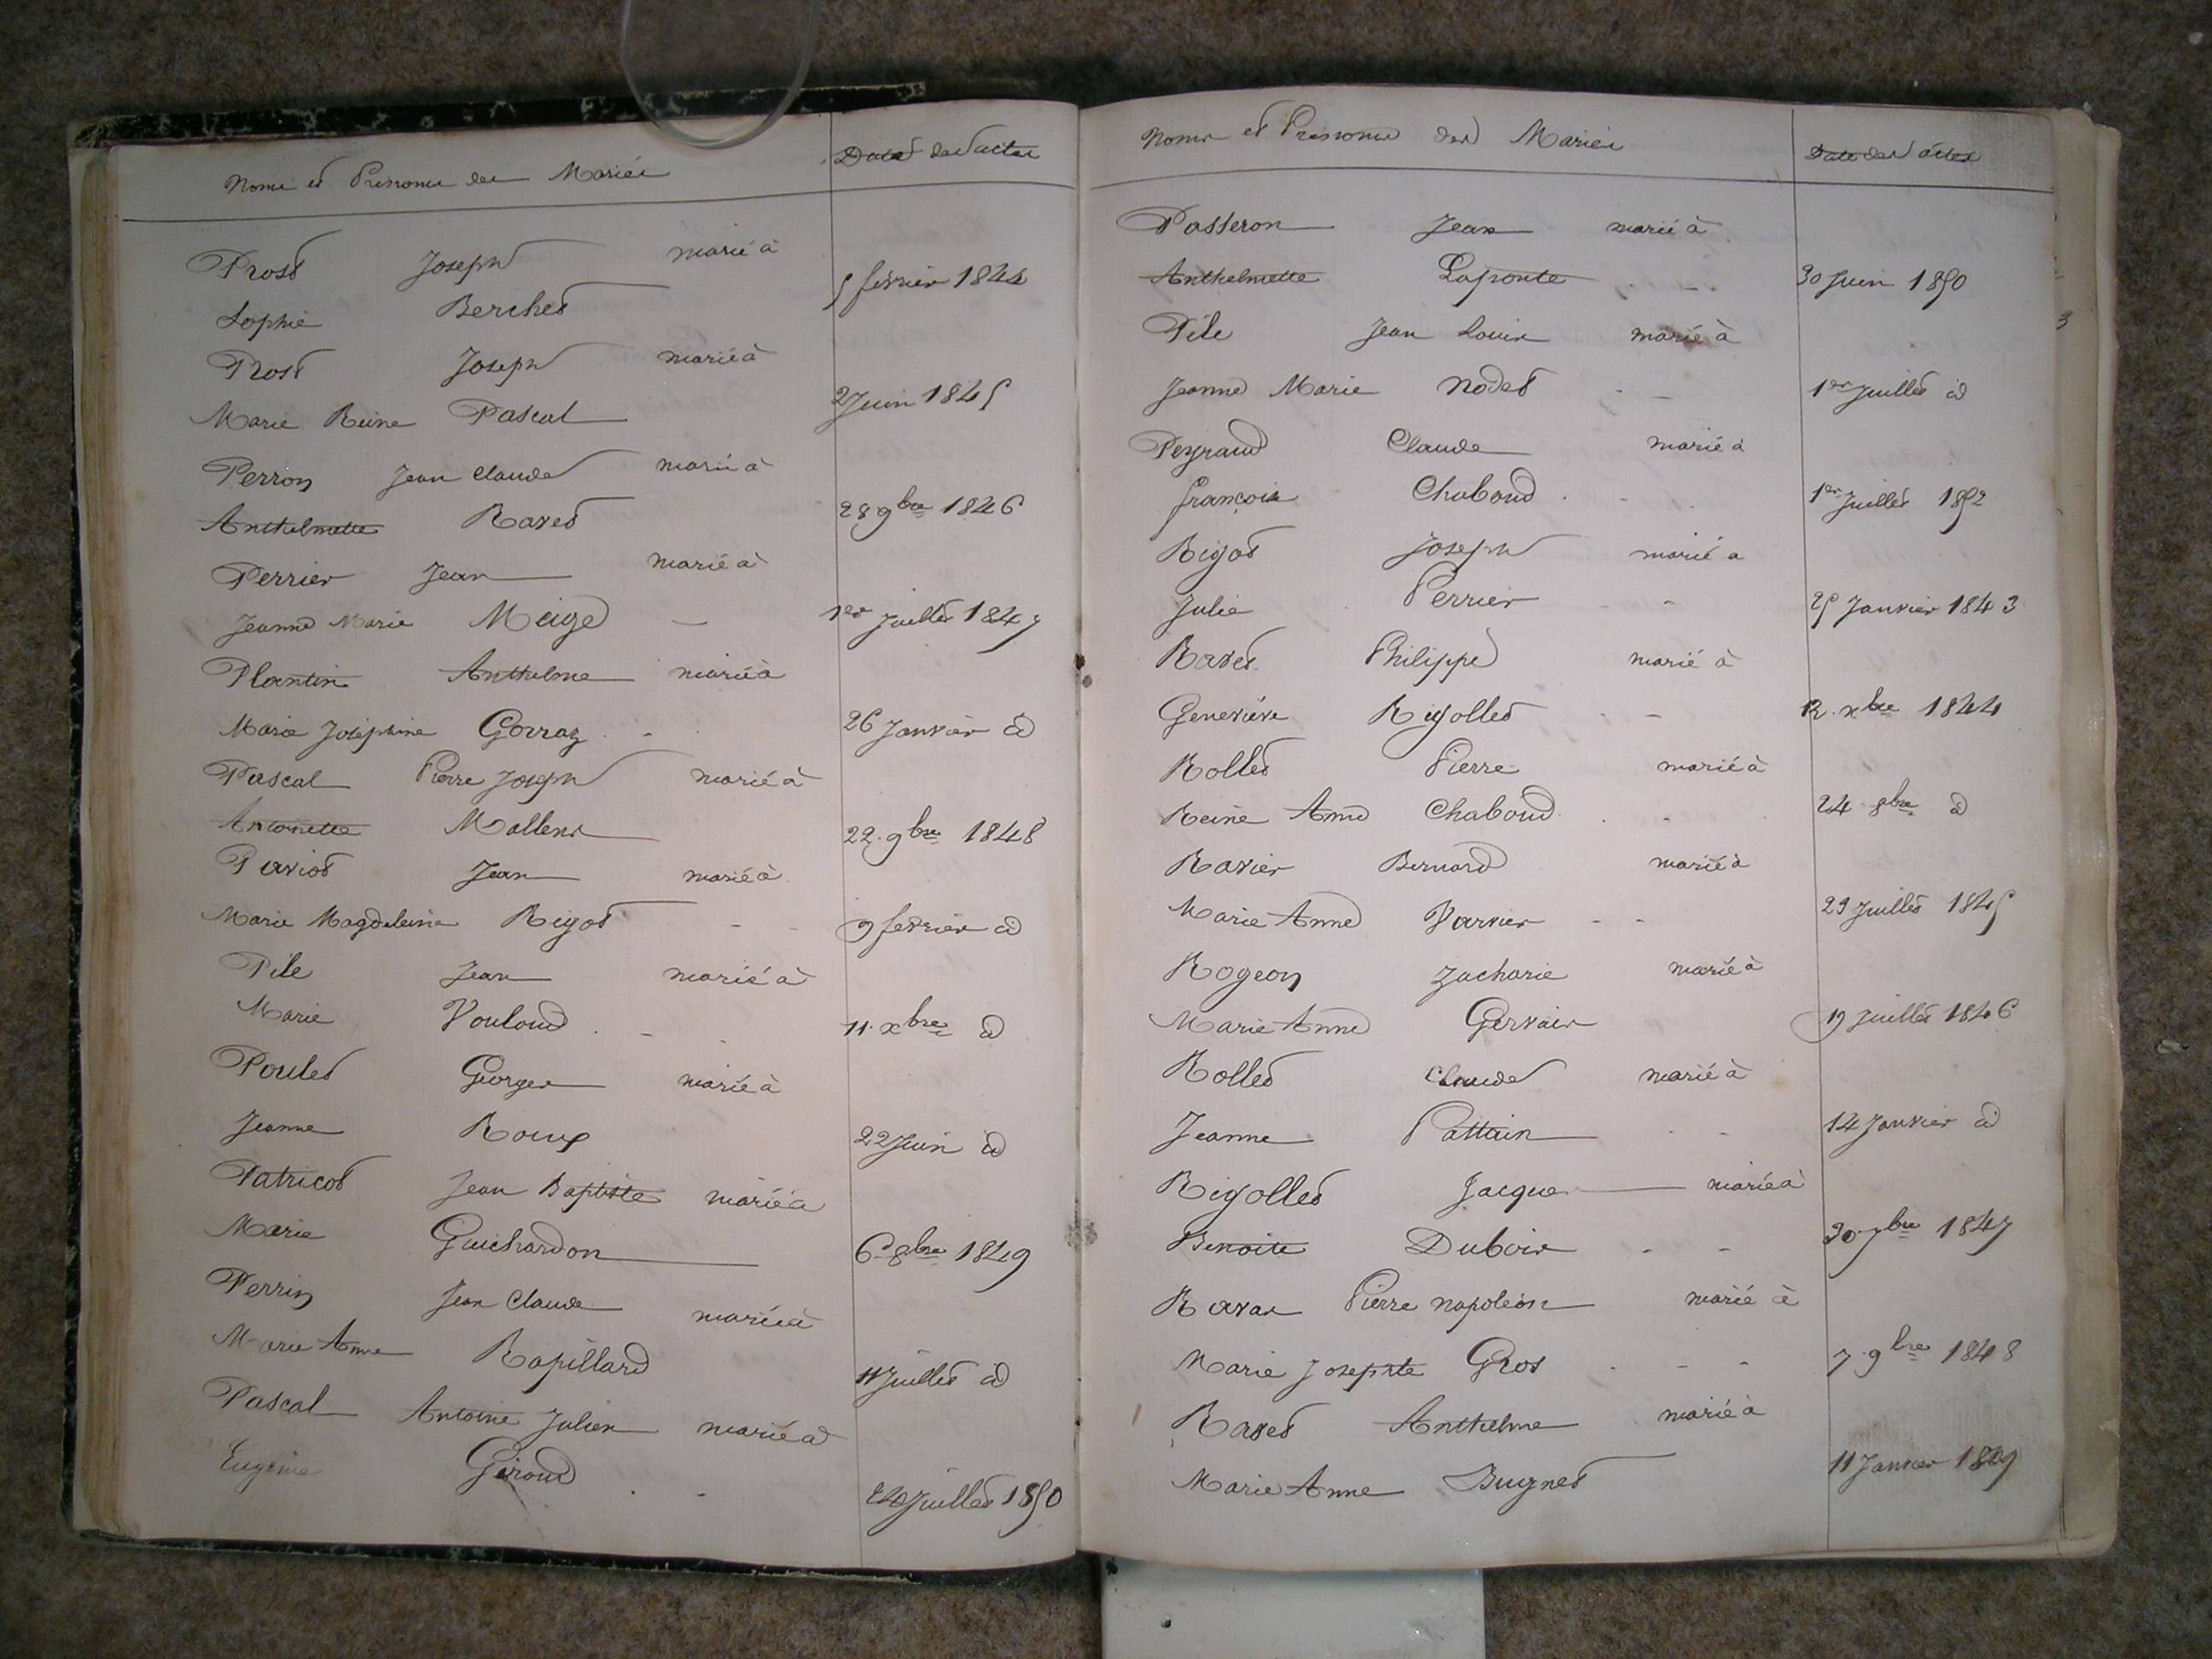 Noms et Prénoms des Mariés
Dates des actes
Prost Joseph marié à
Sophie Berchet
5 février 1844
Prost Joseph marié à
Marie Reine Pascal
2 Juin 1845
Perron Jean Claude marié à
Anthelmette Ravet
28 9bre 1846
Perrier Jean marié à
Jeanne Marie Meige
1er Juillet 1847
Plantin Anthelme marié à
Marie Joséphine Gorraz
26 Janvier id
Pascal Pierre Joseph marié à
Antoinette Mollens
22. 9bre 1848
Paviot Jean marié à
Marie Magdeleine Rigot
9 février id
Pile Jean marié à
Marie Vouloud
11. xbre id
Poulet Georges marié à
Jeanne Roux
22 Juin id
Patricot Jean Baptiste marié à
Marie Guichardon
6 8bre 1849
Perrin Jean Claude marié à
Marie Anne Rapillard
11 Juillet id
Pascal Antoine Julien marié à
Eugénie Giroud
Juillet 1850
Noms et Prénoms des Mariés
Date des actes
Passeron Jean marié à
Anthelmette Laponte
30 Juin 1850
Pile Jean Louis marié à
Jeanne Marie Nodet
1er Juillet id
Peyraud Claude marié à
françoise Chaboud
1er Juillet 1852
Rigot Joseph marié a
Julie Perrier
25 Janvier 1843
Ravet Philippe marié à
Geneviève Rigollet
12. xbre 1844
Rollet Pierre marié à
Reine Anne Chaboud
24 8bre id
Ravier Bernard marié à
Marie Anne Varvier
29 Juillet 1845
Rogeon Zacharie marié à
Marie Anne Gervais
19 Juillet 1846
Rollet Claude marié à
Jeanne Pattain
14 Janvier id
Rigollet Jacques marié à
Benoite Dubois
30 7bre 1847
Ravas Pierre Napoléon marié à
Marie Josephte Gros
7. 9bre 1848
Ravet Anthelme marié à
Marie Anne Bugnet
11 Janvier 1849